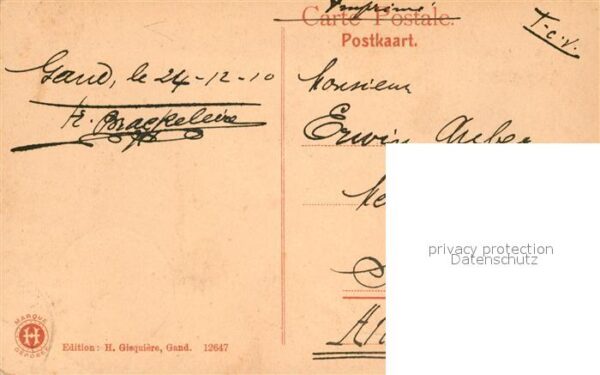 Imprimé
Carte Postale.
Postkaart.
T.c.V.
Gand, le 24-12-10
Monsieur
Erwin
privacy protection
Datenschutz
MARQUE
H
DEPOSÉE
Edition: H. Gisquière, Gand. 12647